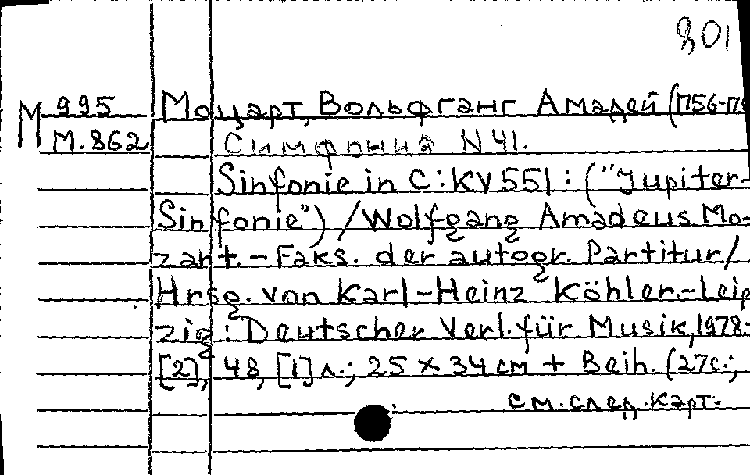 801
М 995
М.862
Моцарт, Вольфганг Амадей (1756-179
Симфония N 41.
Sinfonie in C: KV 551: ("Jupiter-
Sinfonie") / Wolfgang Amadeus Mo-
zart. - Faks. der autogr. Partitur /
Hrsg. von Karl-Heinz Köhler.-Leip
zig: Deutscher Verl. für Musik, 1978.-
[2], 48, [1] л.; 25 x 34 см + Beih. (27с.;
см. след. карт.